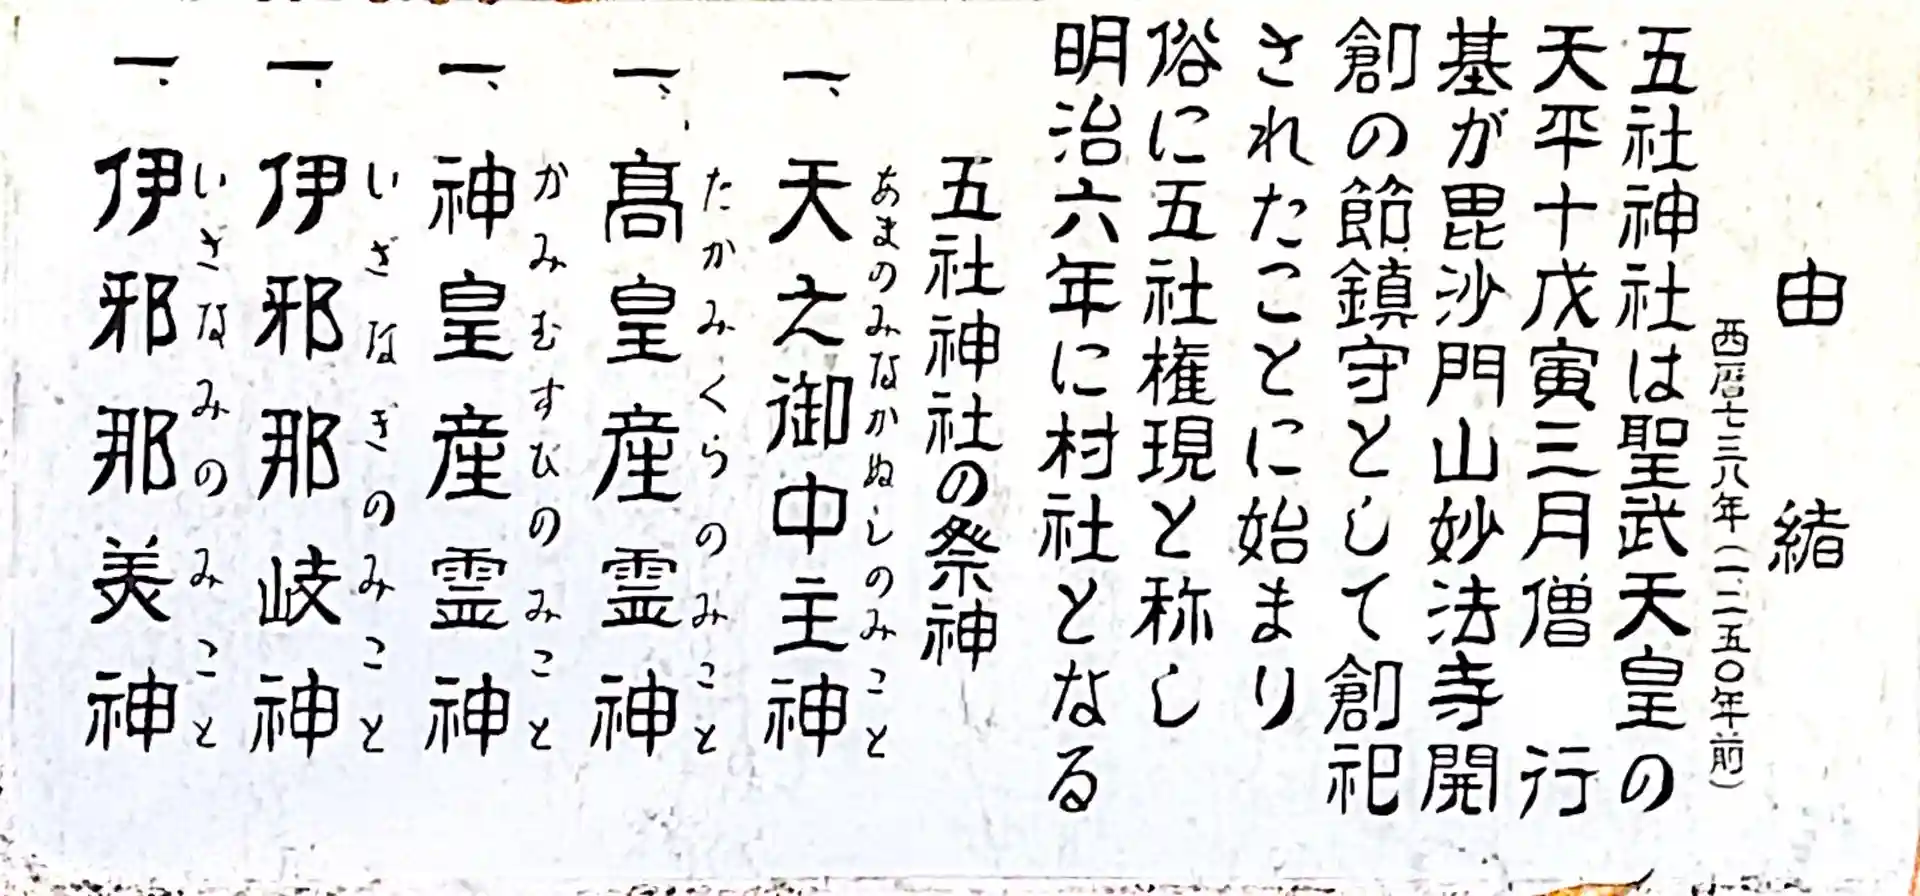 由緒
西暦七三八年(一、二五〇年前)
五社神社は聖武天皇の
天平十戊寅三月僧 行
基が毘沙門山妙法寺開
創の節鎮守として創祀
されたことに始まり
俗に五社権現と称し
明治六年に村社となる
五社神社の祭神
あまのみなかぬしのみこと
一、天之御中主神
たかみくらのみこと
一、高皇産霊神
かみむすひのみこと
一、神皇産霊神
いざなぎのみこと
一、伊邪那岐神
いざなみのみこと
一、伊邪那美神